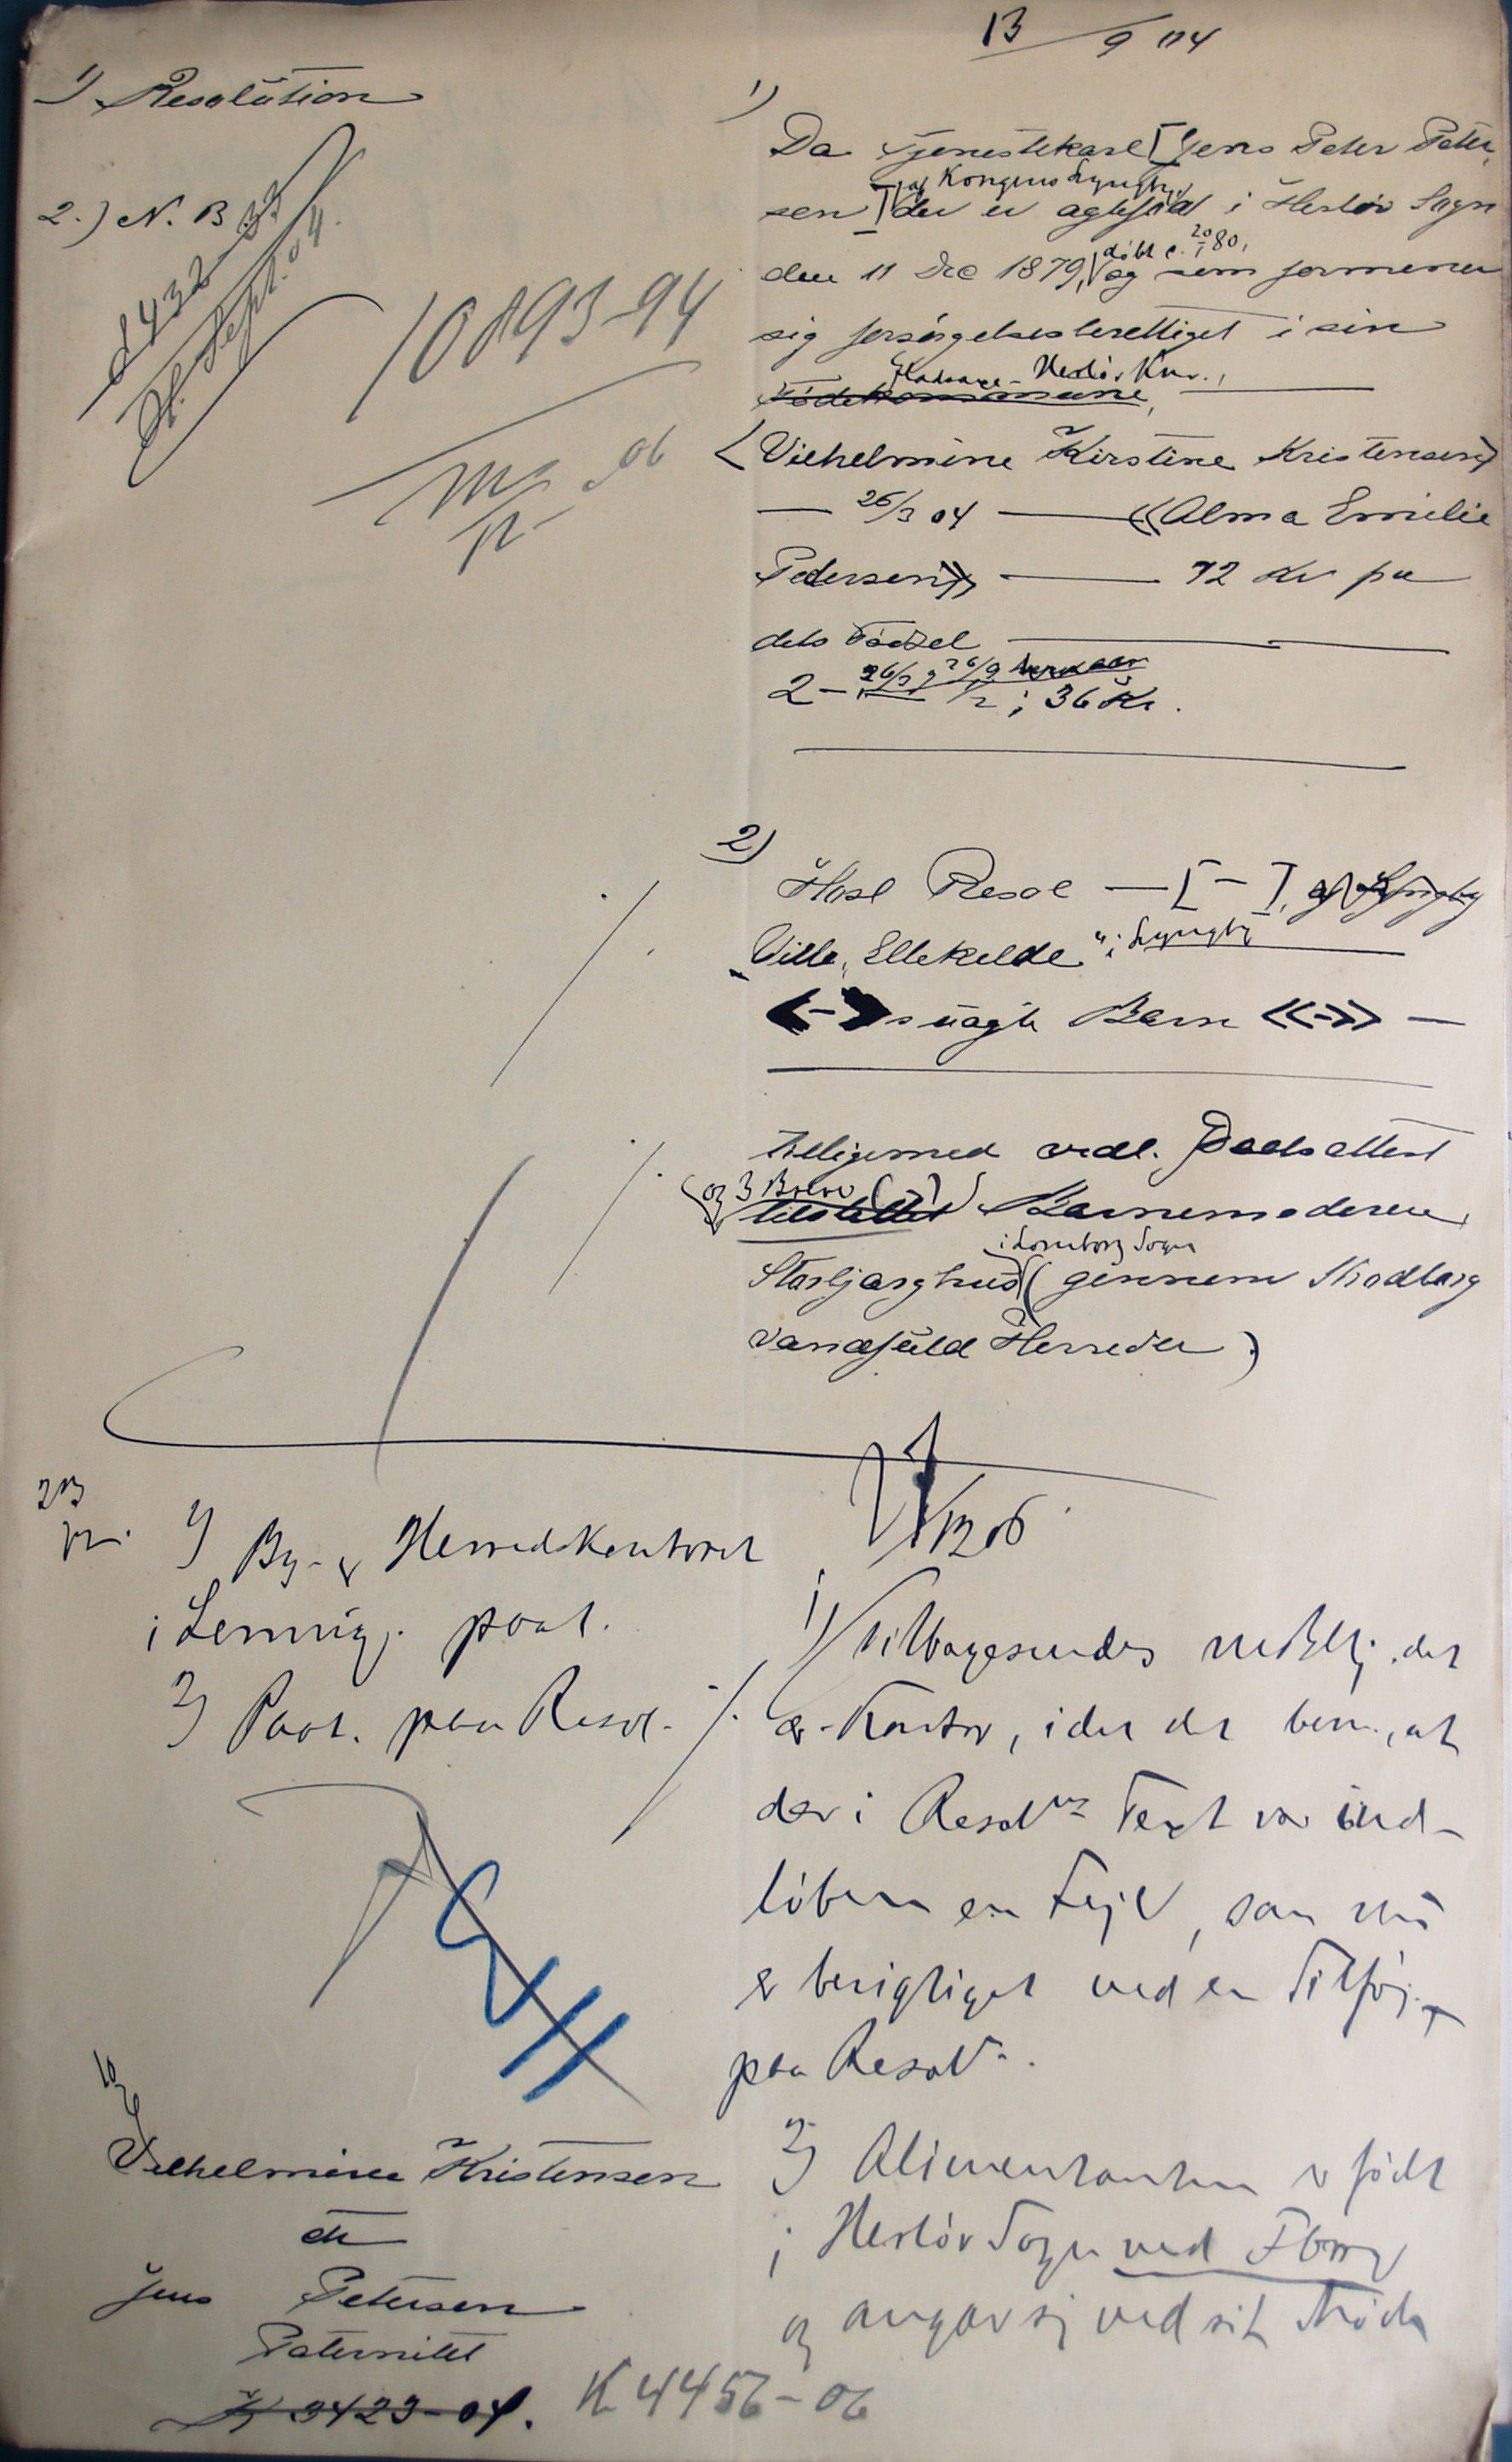 13/9 04
1) Resolution
2.) N. B.
10893-94
06
1)
Da Tjenestekarl [Jens Peter Peter-
sen] af Kongens Lyngby, der er ægtefød i Herløv Sogn
den 11 Dec 1879, døbt 80, og som formener
sig forsørgelsesberettiget i sin
Fødekommune, Gladsaxe-Herløv Km.,
<Vilhelmine Kirstine Kristensen>
— 26/3 04 — <<Alma Emilie
Pedersen>> — 72 Kr paa
dets Fødsel —
2 - 26/3 26/9 1/2; 36 Kr.
2)
Hosl Resol — [-], af Lyngby
Villa "Ellekilde" i Lyngby
<-> s uægte Barn <<->> —
tilligemed vedl. Daabsattest
og 3 Breve (-) tilstillet Barnemoderen
i Lomborg Sogn
(gennem Skodborg
Vandfuld Herreder)
1/12 06
1) By- & Herredskontoret
i Lemvig. paat.
2) Paat. paa Resol.
1) Tilbagesendes det
æ. Kontor, idet det bem., at
der i Resolns Text var ind-
løben en Fejl, som nu
er berigtiget ved en Tilføj.
paa Resoln.
2) Alimentanten er født
i Herløv Sogn ved Fborg
og angav sig ved sit Møde
Vilhelmine Kristensen
ctr
Jens Petersen
Paternitet
K 3423-04.
K 4456-06